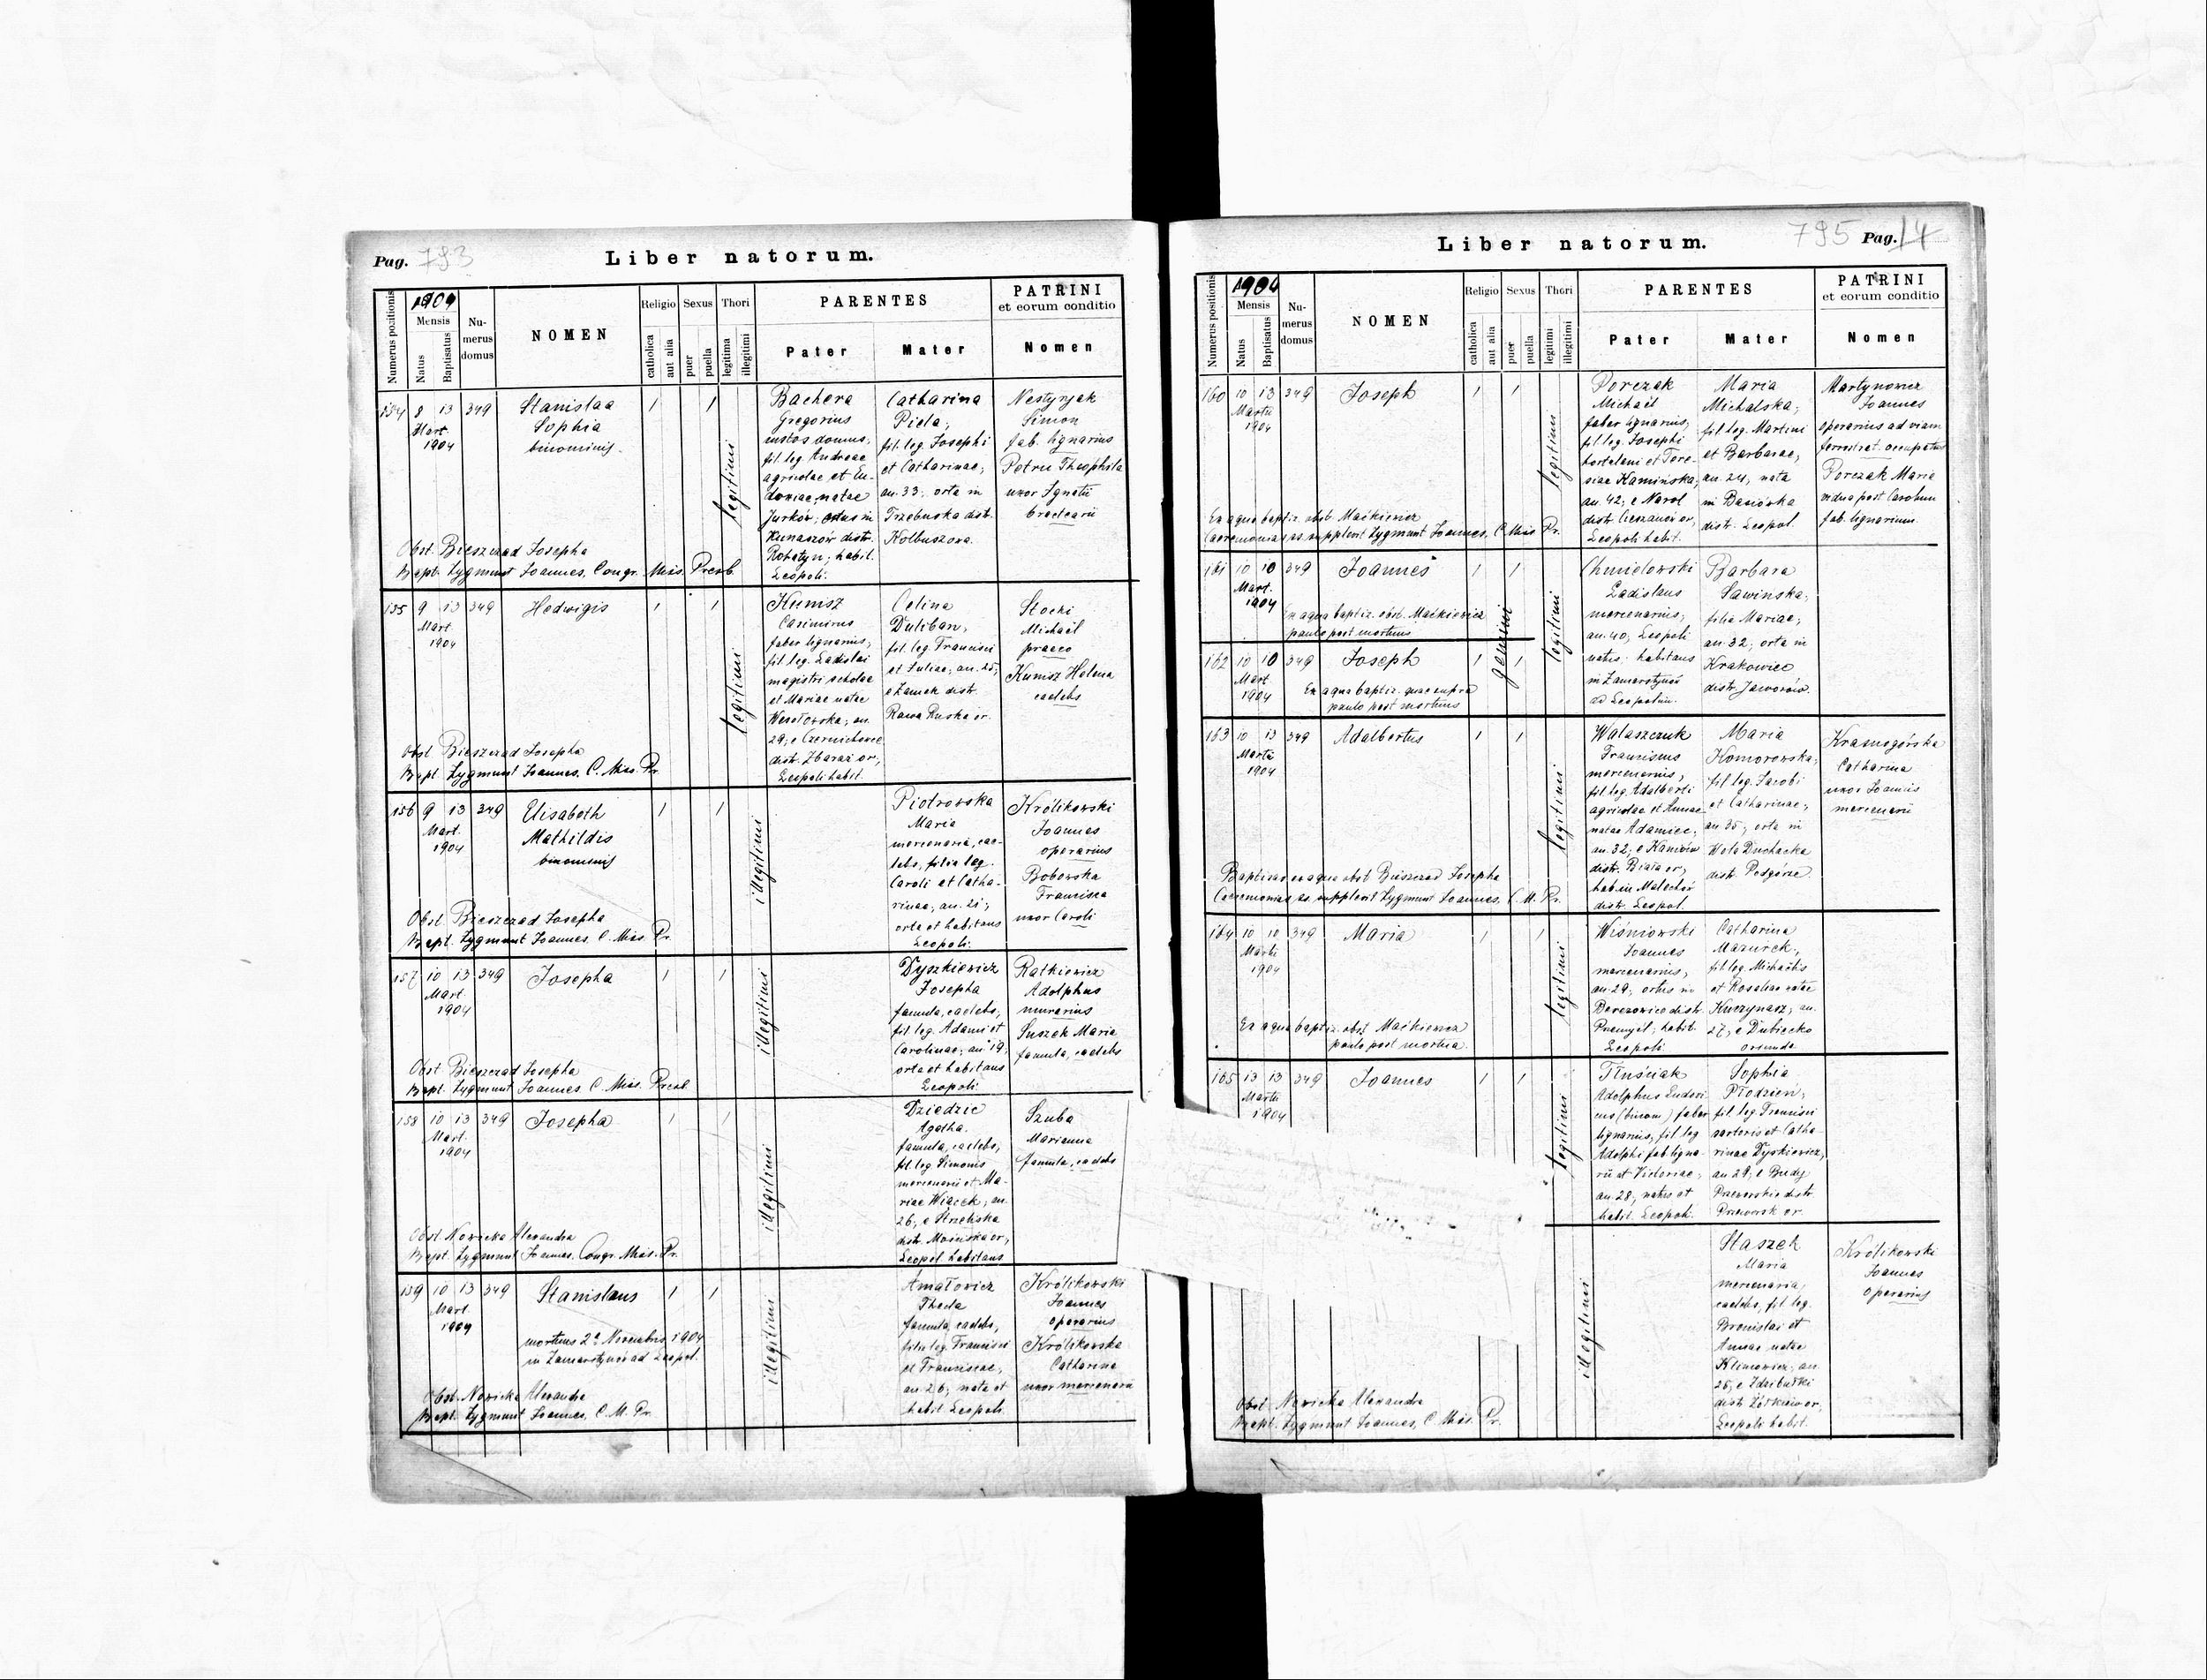 Pag. 793
Liber natorum.
Numerus positionis
1904
Mensis
Natus
Baptisatus
Nu-
merus
domus
NOMEN
Religio
catholica
aut alia
Sexus
puer
puella
Thori
legitima
illegitimi
PARENTES
Pater
Mater
PATRINI
et eorum conditio
Nomen
154 8 13 349
Mart.
1904
Stanislaa
Sophia
binominis
legitimi
Bachera
Gregorius
custos domus,
fil. leg. Andreae
agricolae et Eu-
doxiae natae
Jurków, ortus in
Kunaszów distr.
Rohatyn; habit.
Leopoli.
Catharina
Piela,
fil. leg. Josephi
et Catharinae,
an. 33, orta in
Trzebuska distr.
Kolbuszowa.
Simon
fab. lignarius
Petru Theophila
uxor Ignatii
Obst. Bieszczad Josepha
Bapt. Zygmunt Joannes, Congr. Miss. Presb.
155 9 13 349
Mart.
1904
Hedwigis
legitimi
Kumsz
Casimirus
faber lignarius,
fil. leg. Ladislai
magistri scholae
et Mariae natae
Wesołowska, an.
29, e Czernichowce
distr. Zbaraż or,
Leopoli habit.
Celina
Duliban,
fil. leg. Francisci
et Juliae, an. 25,
e Zamek distr.
Rawa Ruska or.
Stocki
Michaël
praeco
Kumsz Helena
caelebs
Obst. Bieszczad Josepha
Bapt. Zygmunt Joannes, C. Miss. Pr.
156 9 13 349
Mart.
1904
Elisabeth
Mathildis
binominis
illegitimi
Piotrowska
Maria
mercenaria, cae-
lebs, filia leg.
Caroli et Catha-
rinae, an. 21,
orta et habitans
Leopoli.
Królikowski
Joannes
operarius
Bobowska
Francisca
uxor Caroli
Obst. Bieszczad Josepha
Bapt. Zygmunt Joannes, C. Miss. Pr.
157 10 13 349
Mart.
1904
Josepha
illegitimi
Dyszkiewicz
Josepha
famula, caelebs,
fil. leg. Adami et
Carolinae, an. 19,
orta et habitans
Leopoli
Ratkiewicz
Adolphus
murarius
Suszek Maria
famula, caelebs
Obst. Bieszczad Josepha
Bapt. Zygmunt Joannes C. Miss. Presb
158 10 13 349
Mart.
1904
Josepha
illegitimi
Dziedzic
Agatha.
famula, caelebs,
fil. leg. Simonis
mercenarii et Ma-
riae Wiącek, an.
26, e Strzeliska
distr. or,
Leopol. habitans
Szuba
Marianna
famula, caelebs
Obst. Nowicka Alexandra
Bapt. Zygmunt Joannes, Congr. Miss. Pr.
159 10 13 349
Mart.
1904
Stanislaus
mortuus 2a Novembris 1904
in Zamarstynów ad Leopol.
illegitimi
Amałowicz
Thecla
famula, caelebs,
filia leg. Francisci
et Franciscae,
an. 26, nata et
habit. Leopoli
Królikowski
Joannes
operarius
Królikowska
Catharina
uxor mercenarii
Obst. Nowicka Alexandra
Bapt. Zygmunt Joannes, C. M. Pr.
Liber natorum.
795 Pag. 14
Numerus positionis
1904
Mensis
Natus
Baptisatus
Nu-
merus
domus
NOMEN
Religio
catholica
aut alia
Sexus
puer
puella
Thori
legitimi
illegitimi
PARENTES
Pater
Mater
PATRINI
et eorum conditio
Nomen
160 10 13 349
Martii
1904
Joseph
legitimi
Porczak
Michaël
faber lignarius,
fil. leg. Josephi
hortulani et There-
siae Kamińska,
an. 42, e Narol
distr. Cieszanów or,
Leopoli habit.
Maria
Michalska,
fil. leg. Martini
et Barbarae,
an. 24, nata
in Basiówka
distr. Leopol.
Martynowicz
Joannes
operarius ad viam
ferratam occupatus
Porczak Maria
vidua post Carolum
fab. lignarium
Ex aqua baptiz. obst. Maćkiewicz
Caeremonias ss. supplevit Zygmunt Joannes, C. Miss. Pr.
161 10 10 349
Mart.
1904
Joannes
Ex aqua baptiz. obst. Maćkiewicz
paulo post mortuus
gemini
legitimi
Chmielowski
Ladislaus
mercenarius,
an. 40, Leopoli
natus, habitans
in Zamarstynów
ad Leopolim.
Barbara
Sawinska,
filia Mariae,
an. 32, orta in
Krakowiec
distr. Jaworów.
162 10 10 349
Mart.
1904
Joseph
Ex aqua baptiz. quae supra
paulo post mortuus
163 10 13 349
Martii
1904
Adalbertus
legitimi
Walaszczuk
Franciscus
mercenarius,
fil. leg. Adalberti
agricolae et Annae
natae Adamiec,
an. 32, e Kaniów
distr. Biała or,
hab. in Malechów
distr. Leopol.
Maria
Komorowska,
fil. leg. Jacobi
et Catharinae,
an. 35, orta in
Wola Duchacka
distr. Podgórze.
Krasnogórska
Catharina
uxor Joannis
mercenarii
Baptisavit ex aqua obst. Bieszczad Josepha
Caeremonias ss. supplevit Zygmunt Joannes, C. M. Pr.
164 10 10 349
Martii
1904
Maria
legitimi
Wiśniowski
Joannes
mercenarius,
an. 29, ortus in
distr.
Przemyśl, habit.
Leopoli.
Catharina
Mazurek,
fil. leg. Michaëlis
et Rosaliae natae
Kurzynasz, an.
27, e Dubiecko
oriunda
Ex aqua baptiz. obst. Maćkiewicz
paulo post mortua.
165 13 13 349
Martii
1904
Joannes
legitimi
Tłuściak
Adolphus Ludovi-
cus (binom) faber
lignarius, fil. leg
Adolphi fab. ligna-
rii et Victoriae,
an. 28, natus et
habit. Leopoli.
Sophia
Płodzień,
fil. leg. Francisci
sartoris et Catha-
rinae Dyskiewicz,
an. 29, e Budy
Przeworskie distr.
Przeworsk or.
illegitimi
Staszek
Maria
mercenaria,
caelebs, fil. leg.
Bronislai et
Annae natae
Klimowicz, an.
25, e
distr. Żółkiew or,
Leopoli habit.
Królikowski
Joannes
operarius
Obst. Nowicka Alexandra
Bapt. Zygmunt Joannes, C. Miss. Pr.